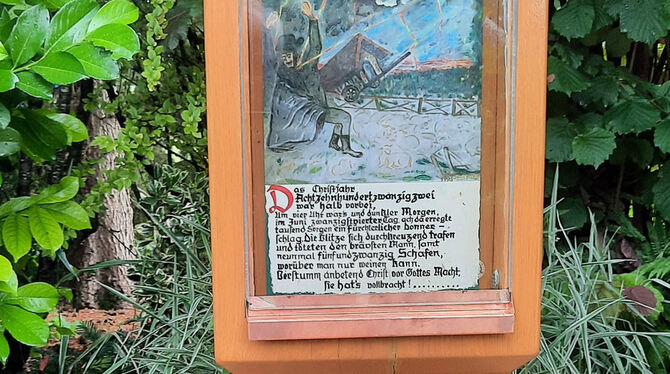 Das Christjahr
Achtzehnhundertzwanzigzwei
war halb vorbei,
Um vier Uhr war's und dunkler Morgen,
im Juni zwanzigstvierter Tag, ach da erregte
tausend Sorgen ein fürchterlicher Donner-
schlag. Die Blitze sich durchkreuzend trafen
und töteten den bravsten Mann, samt
neunmal fünfundzwanzig Schafen,
worüber man nur weinen kann.
Verstumm anbetend Christ vor Gottes Macht,
sie hat's vollbracht!..........